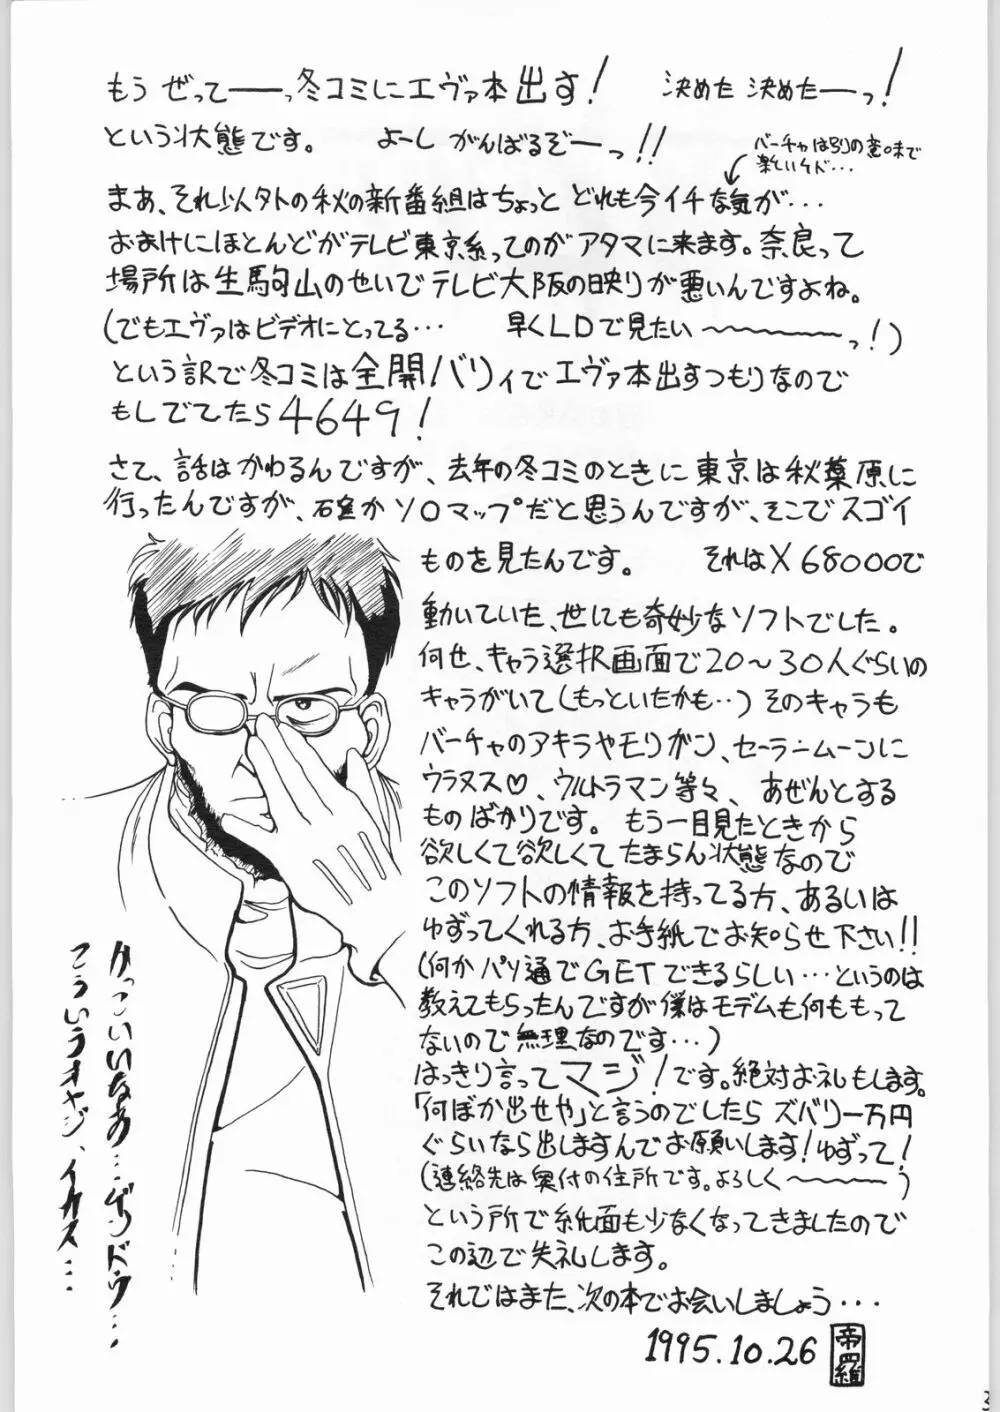 もう ぜってーっ冬コミにエヴァ本出す! 決めた 決めたーっ!
という状態です。 よーし がんばるぞーっ!!
バーチャは別の意味で
楽しいケド…
まあ、それ以外の秋の新番組はちょっと どれも今イチな気が…
おまけにほとんどがテレビ東京系ってのがアタマに来ます。奈良って
場所は生駒山のせいでテレビ大阪の映りが悪いんですよね。
(でもエヴァはビデオにとってる… 早くLDで見たい〜〜〜っ!)
という訳で冬コミは全開バリィでエヴァ本出すつもりなので
もしでてたら4649!
さて、話はかわるんですが、去年の冬コミのときに東京は秋葉原に
行ったんですが、確かソロマップだと思うんですが、そこでスゴイ
ものを見たんです。 それはX68000で
動いていた、世にも奇妙なソフトでした。
何せ、キャラ選択画面で20〜30人ぐらいの
キャラがいて(もっといたかも…)そのキャラも
バーチャのアキラやモリガン、セーラームーンに
ウラヌス♡、ウルトラマン等々、あぜんとする
ものばかりです。もう一目見たときから
欲しくて欲しくてたまらん状態なので
このソフトの情報を持ってる方、あるいは
ゆずってくれる方、お手紙でお知らせ下さい!!
(何かパソ通でGETできるらしい…というのは
教えてもらったんですが僕はモデムも何ももって
ないので無理なのです…)
はっきり言ってマジ!です。絶対お礼もします。
「何ぼか出せや」と言うのでしたら ズバリ一万円
ぐらいなら出しますんでお願いします!ゆずって!
(連絡先は奥付の住所です。よろしく〜〜〜)
という所で紙面も少なくなってきましたので
この辺で失礼します。
それではまた、次の本でお会いしましょう…
1995.10.26 帝羅
かっこいいなあ…ゲンドウ…
こういうオヤジ、イカス…
3